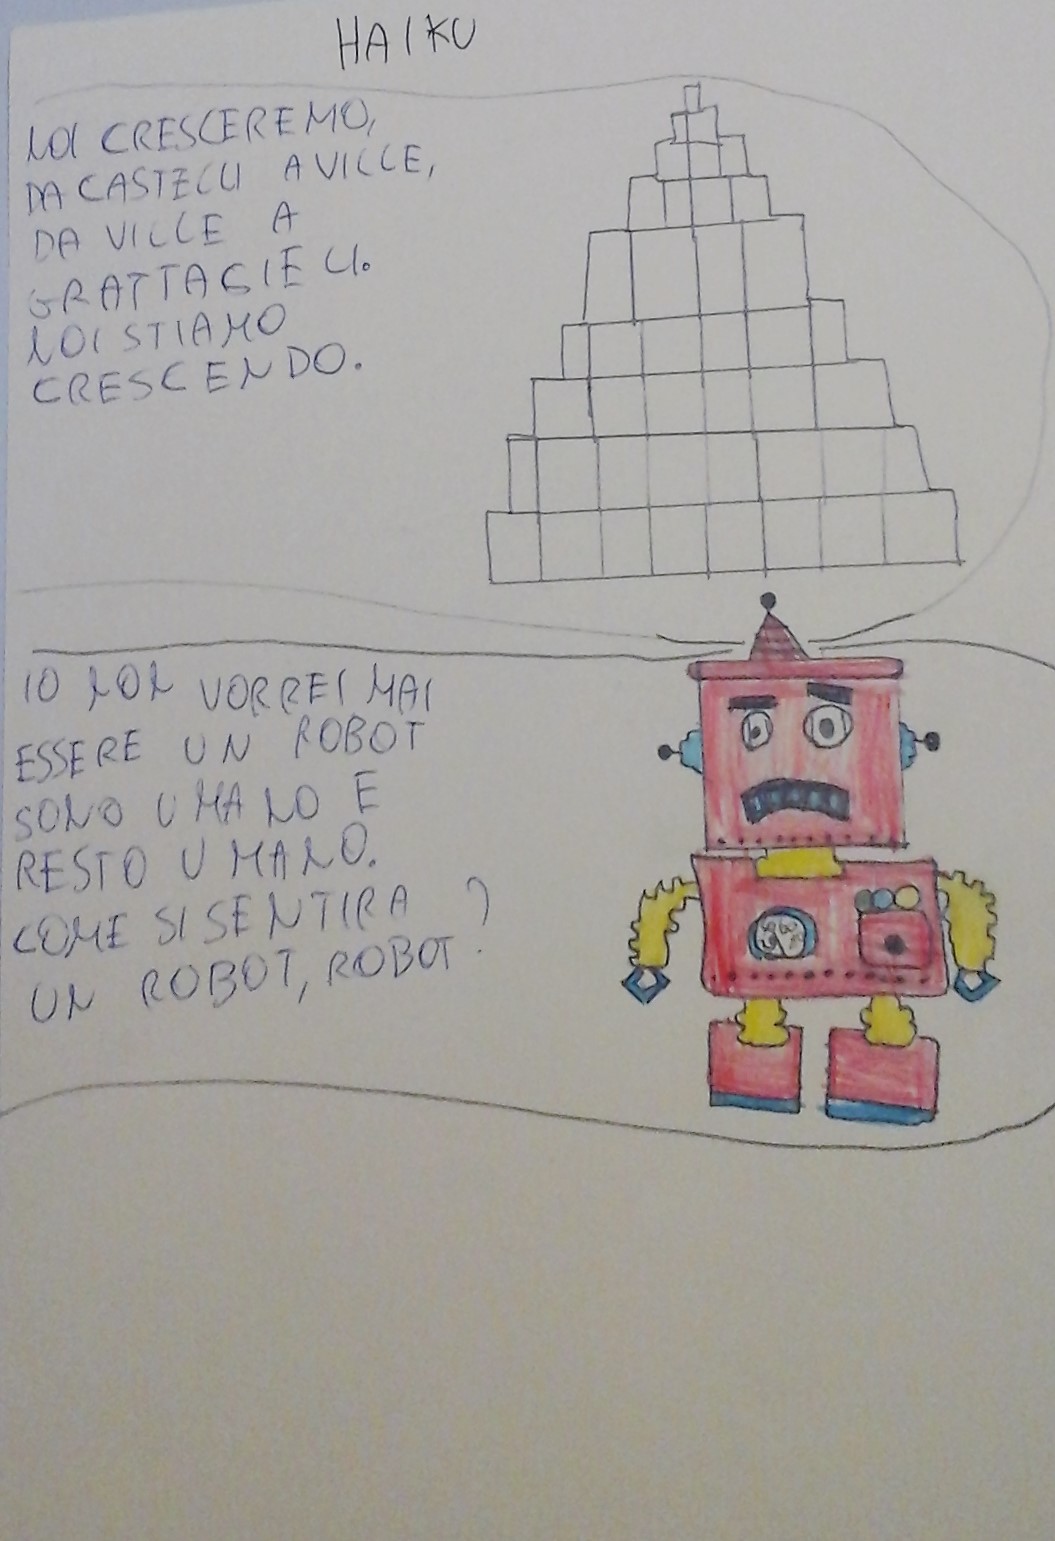 HAIKU
NOI CRESCEREMO,
DA CASTELLI A VILLE,
DA VILLE A
GRATTACIELI.
NOI STIAMO
CRESCENDO.
IO NON VORREI MAI
ESSERE UN ROBOT
SONO UMANO E
RESTO UMANO.
COME SI SENTIRA
UN ROBOT, ROBOT?